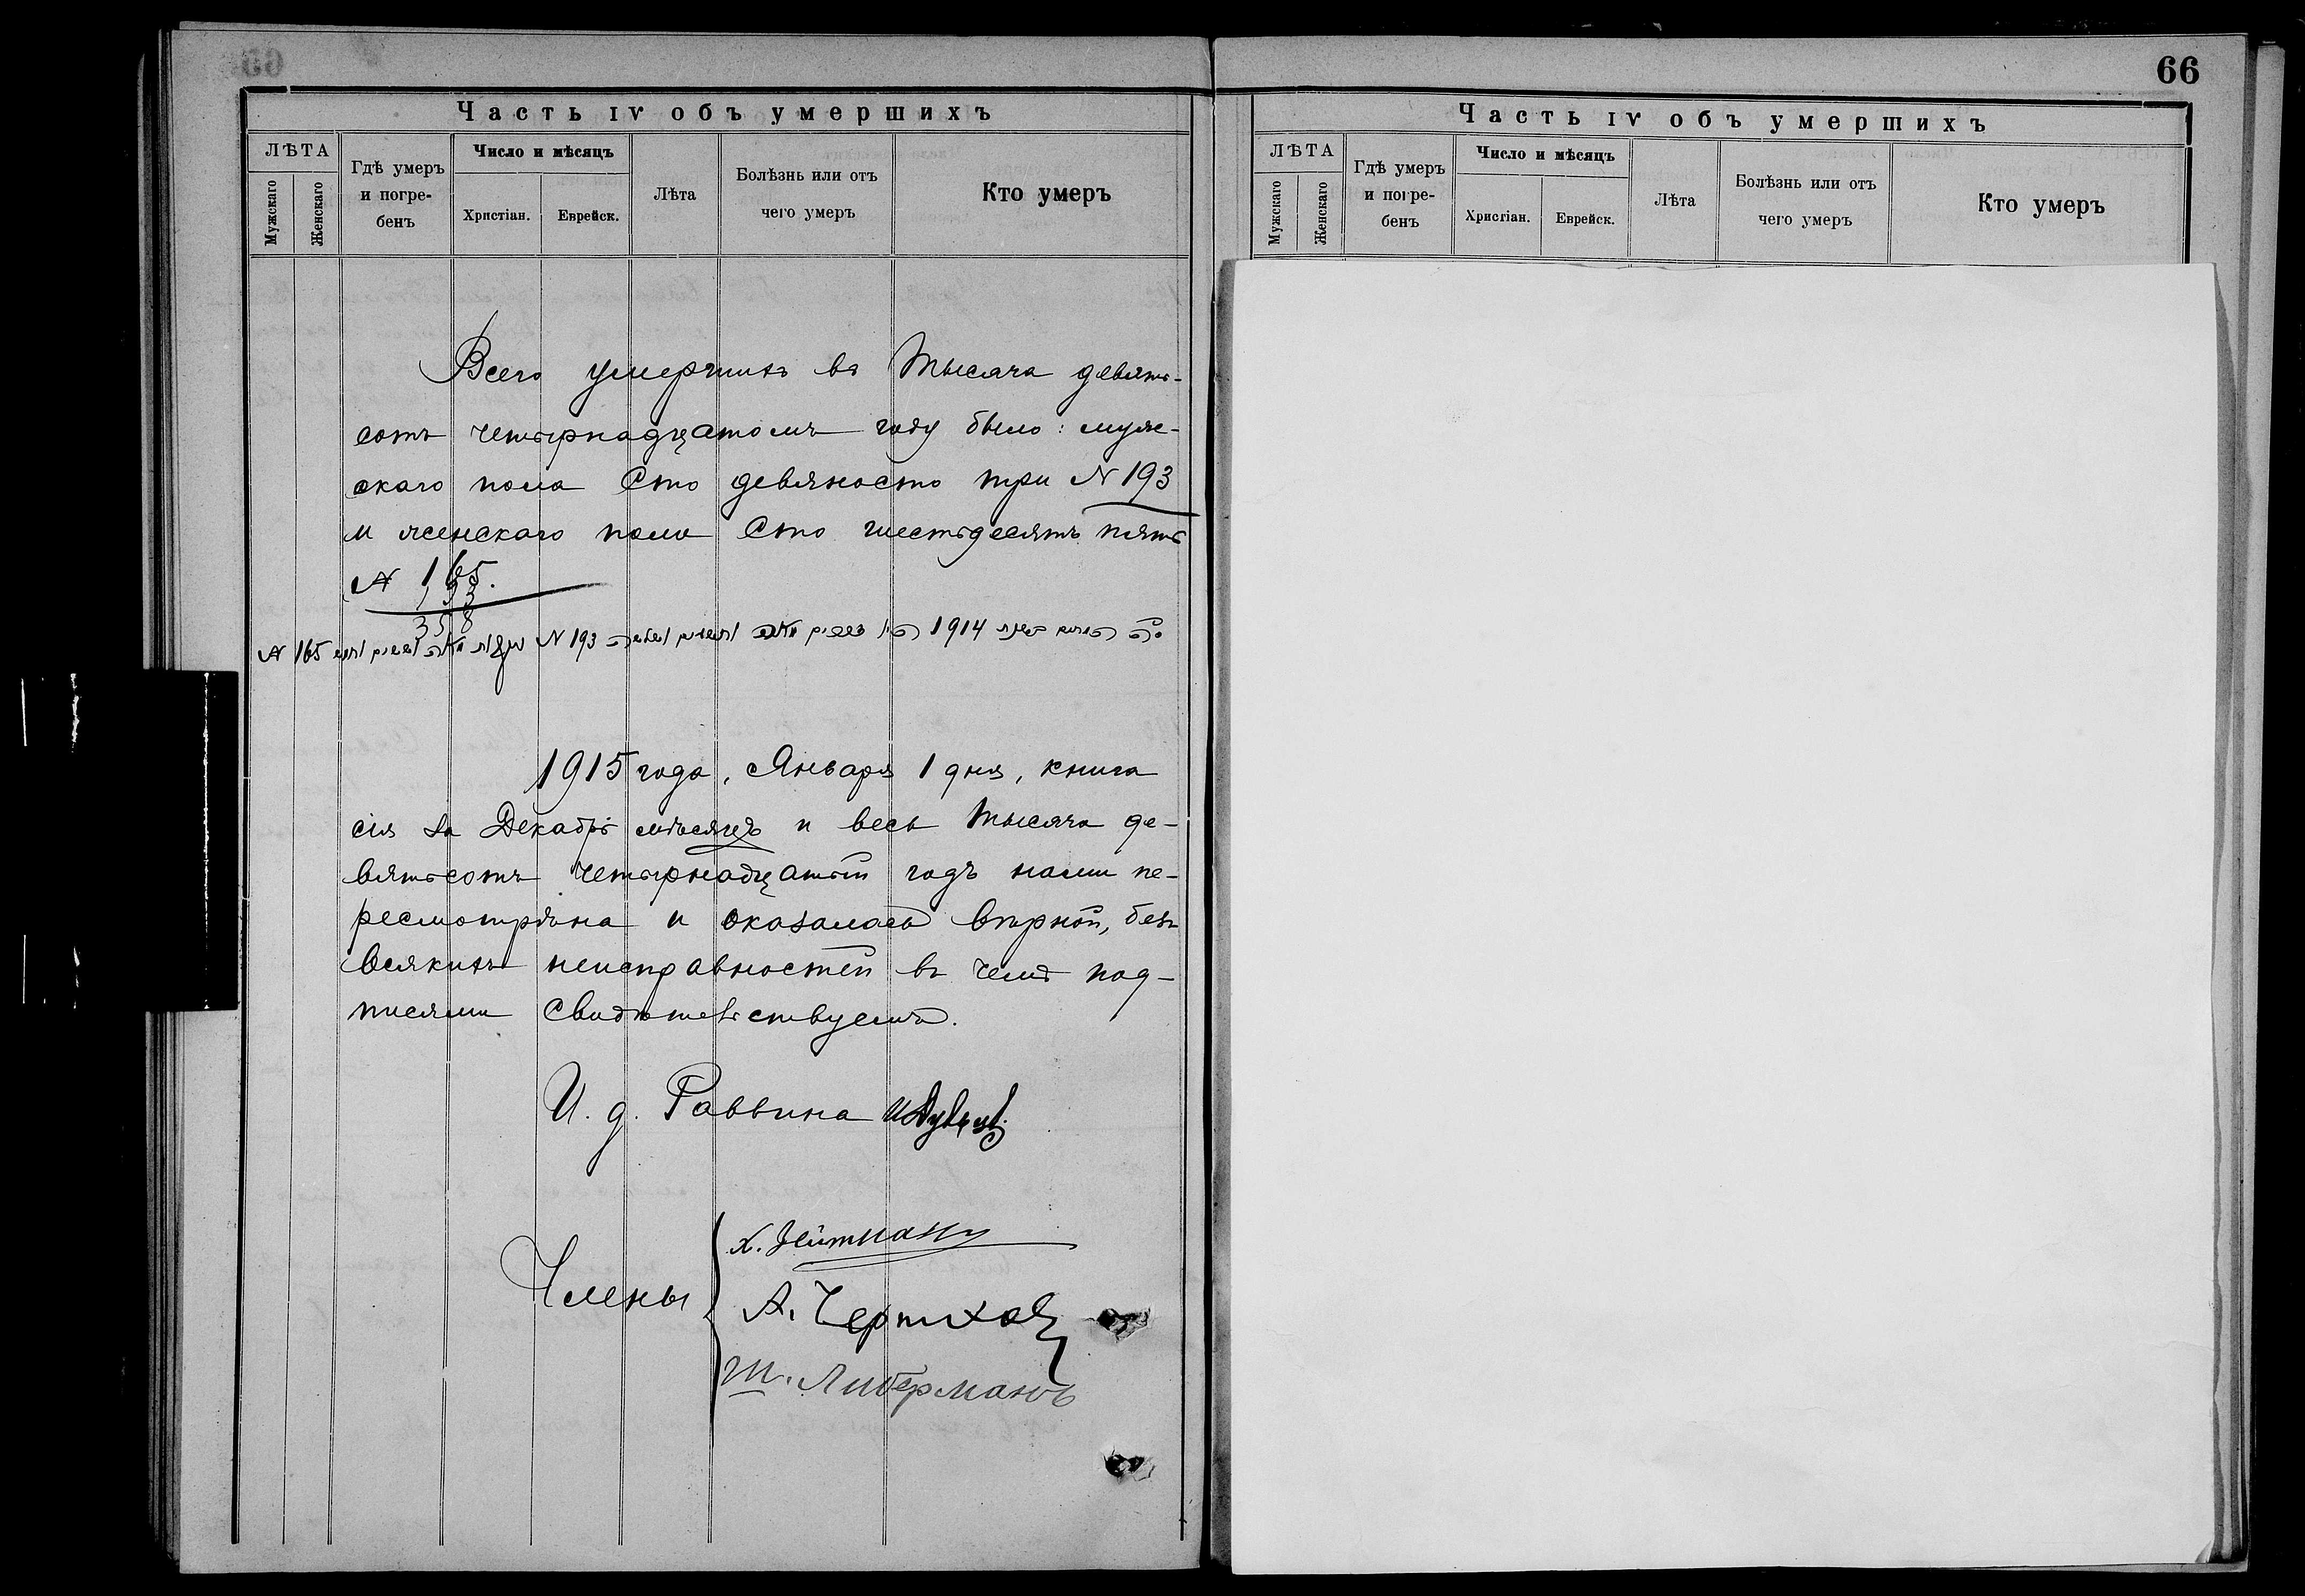 66
Часть IV объ умершихъ
ЛѢТА
Мужскаго
Женскаго
Гдѣ умеръ
и погре-
бенъ
Число и мѣсяцъ
Христіан.
Еврейск.
Лѣта
Болѣзнь или отъ
чего умеръ
Кто умеръ
Всего умершихъ въ тысяча девять-
сотъ четырнадцатомъ году было: муж-
скаго пола Сто девяносто три N 193
и женскаго пола Сто шестьдесятъ пять
N 165.
193
358
N 193 1914
N 165
1915 года, Января 1 дня, книга
сія за Декабрь мѣсяцъ и весь тысяча де-
вятьсотъ четырнадцатый годъ нами пе-
ресмотрѣна и оказалась вѣрной, безъ
всякихъ неисправностей въ чемъ под-
писями свидѣтельствуемъ.
И. д. Раввина
Члены
Х.
А. Чертков
Ш. Либерманъ
Часть IV объ умершихъ
ЛѢТА
Мужскаго
Женскаго
Гдѣ умеръ
и погре-
бенъ
Число и мѣсяцъ
Христіан.
Еврейск.
Лѣта
Болѣзнь или отъ
чего умеръ
Кто умеръ